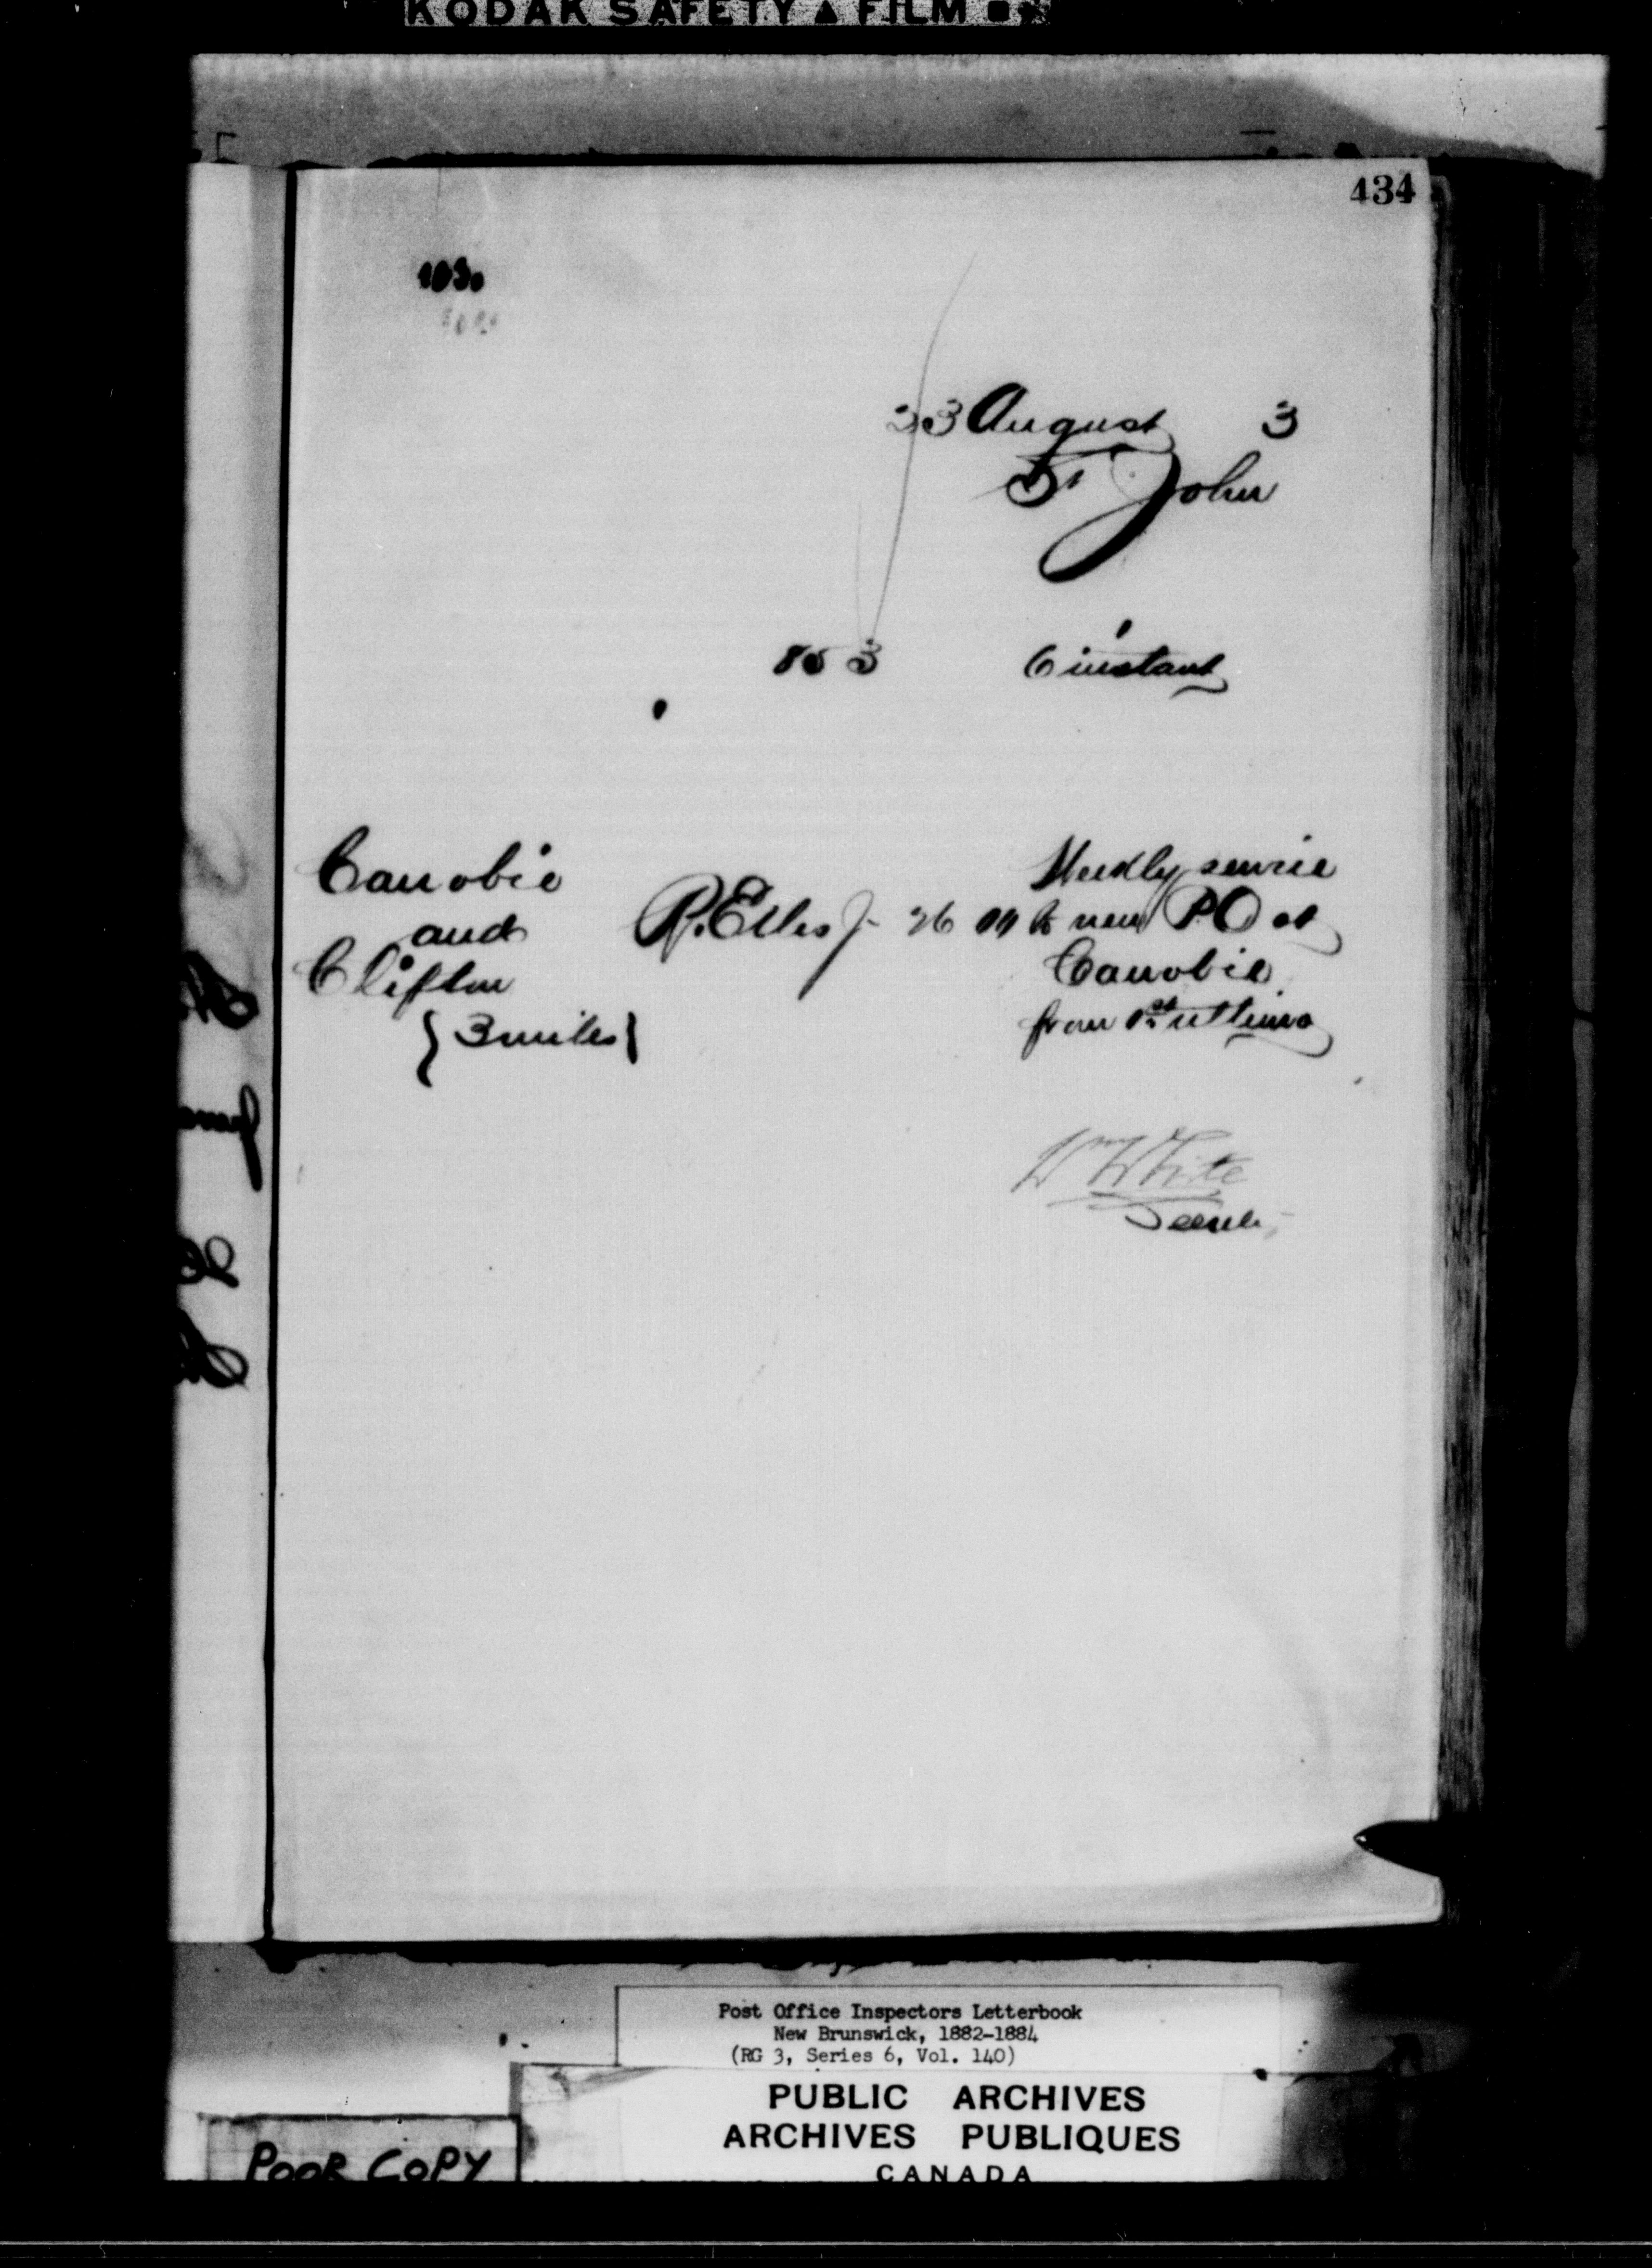 KODAK SAFETY ▲ FILM
434
23 August 3
St John
853 6 instant
Canobie
and
Clifton
{3 miles}
R. Ellis Jr 26 00
Weekly service
to new P.O at
Canobie
from 1st ultimo
Wm White
Secrety
Post Office Inspectors Letterbook
New Brunswick, 1882-1884
(RG 3, Series 6, Vol. 140)
PUBLIC ARCHIVES
ARCHIVES PUBLIQUES
CANADA
POOR COPY